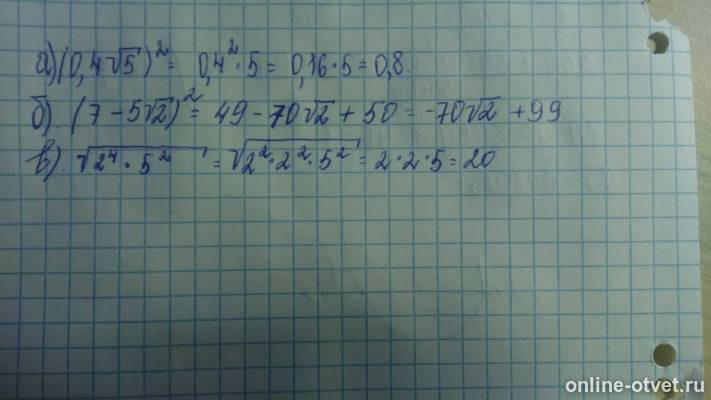 а) (0,4√5)² = 0,4²·5 = 0,16·5 = 0,8.
б). (7 - 5√2)² = 49 - 70√2 + 50 = -70√2 + 99
в). √2⁴·5² = √2²·2²·5² = 2·2·5 = 20
online-otvet.ru